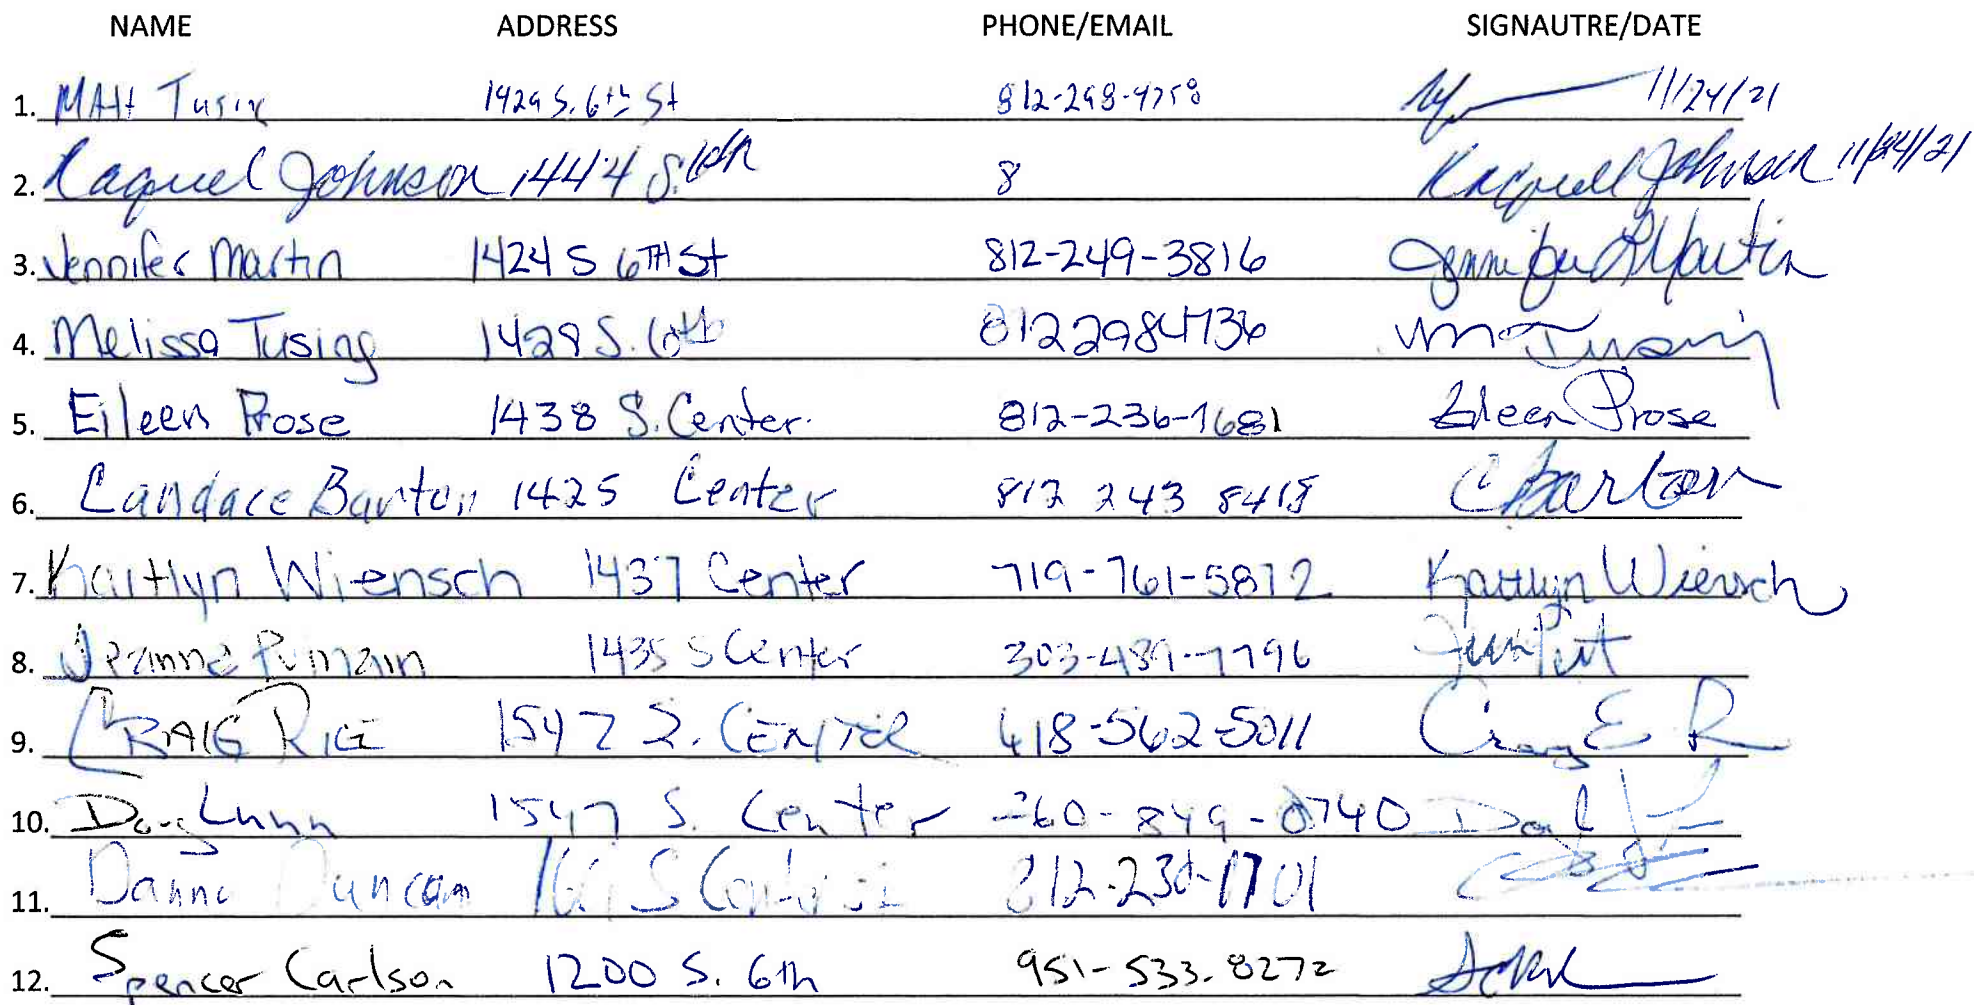 NAME ADDRESS PHONE/EMAIL SIGNAUTRE/DATE
1. Matt 1429 S. 6th St 11/24/21
2. Raquel Johnson 1444 S. 6th 8 Raquell Johnson 11/24/21
3. Jennifer Martin 1424 S 6TH St 812-249-3816 Jennifer L Martin
4. Melissa Tusing 1429 S. 6th 8122984736 M Tusing
5. Eileen Prose 1438 S. Center. 812-236-1681 Eileen Prose
6. Candace Barton 1425 Center 812 243 8418 C Barton
7. Kaitlyn Wiensch 1437 Center 719-761-5872 Kaitlyn Wiensch
8. Jeanne 1435 S Center
9. CRAIG RICE 1547 S. CENTER 418-562-5011 Craig E R
10. Doug Lunn 1547 S. Center
11. Duncan
12. Spencer Carlson 1200 S. 6th 951-533-8272